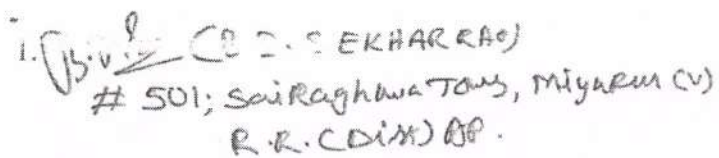 1. EKHAR RAO)
# 501; Sai Raghava Tows, Miyapur (V)
R.R. (Dist) AP.